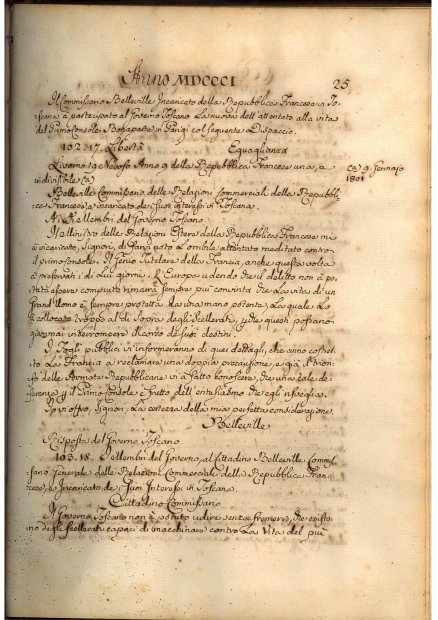 Anno MDCCCI
25
Il Commissario Belleville Incaricato della Repubblica Francese in To-
scana à partecipato al Governo Toscano la nuova dell'attentato alla vita
del Primo Console Bonaparte in Parigi col seguente Dispaccio.
102. 17. Libertà Eguaglianza
Livorno 19 Nevoso Anno 9 della Repubblica Francese una, e
indivisibile (a)
(a) 9. Gennajo
1801
Belleville Commissario delle Relazioni Commerciali della Repubbli-
ca Francese, e incaricato de suoi interessi in Toscana.
Ai Membri del Governo Toscano.
Il Ministro delle Relazioni Estere della Repubblica Francese mi
à incaricato, Signori, di farvi noto l'orribile attentato meditato contro
il primo Console. Il Genio Tutelare della Francia, anche questa volta
à preservati i di Lui giorni. L'Europa udendo che il delitto non à po-
tuto essere compiuto rimarrà sempre più convinta che la vita di un
Grand'Uomo è sempre protetta da una mano potente, la quale lo
à collocato troppo al di sopra degli Scellerati, perche questi possano
giammai interrompere il corso de suoi destini.
I Fogli pubblici v'informeranno di quei dettagli, che anno costret-
to la Francia a reclamare una doppia precauzione, e già il trion-
fo delle Armate Repubblicane vi à fatto conoscere, che una tale de-
ferenza per il Primo Console è frutto dell'entusiasmo che egli risveglia.
Io vi offro, Signori, la certezza della mia perfetta considerazione
Belleville
Risposta del Governo Toscano
103. 18. I Membri del Governo, al Cittadino Belleville Commis-
sario Generale delle Relazioni Commerciali della Repubblica Fran-
cese, e Incaricato de suoi Interessi in Toscana.
Cittadino Commissario
Il Governo Toscano non à potuto udire senza fremere, che esisto-
no degli Scellerati capaci di macchinare contro la Vita del più